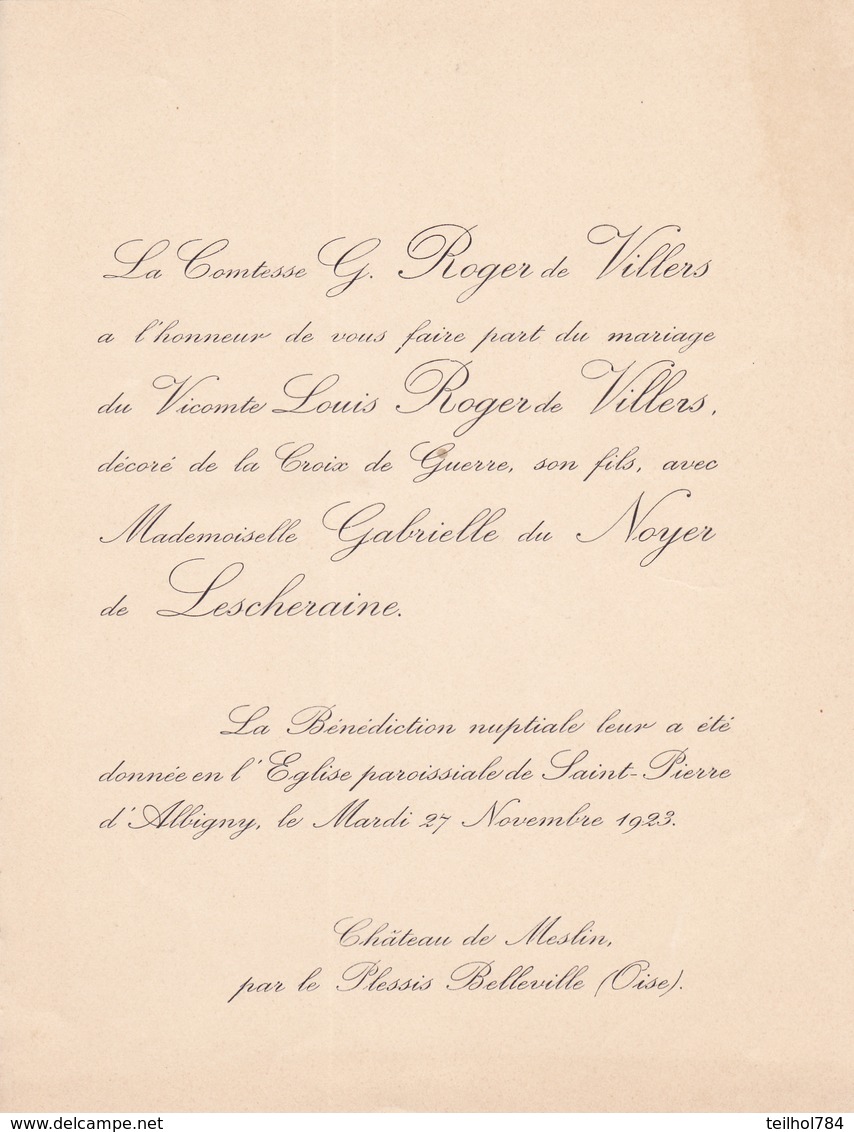 La Comtesse G. Roger de Villers
a l'honneur de vous faire part du mariage
du Vicomte Louis Roger de Villers,
décoré de la Croix de Guerre, son fils, avec
Mademoiselle Gabrielle du Noyer
de Lescheraine.
La Bénédiction nuptiale leur a été
donnée en l'Eglise paroissiale de Saint-Pierre
d'Albigny, le Mardi 27 Novembre 1923.
Château de Meslin,
par le Plessis Belleville (Oise).
www.delcampe.net
teilhol784